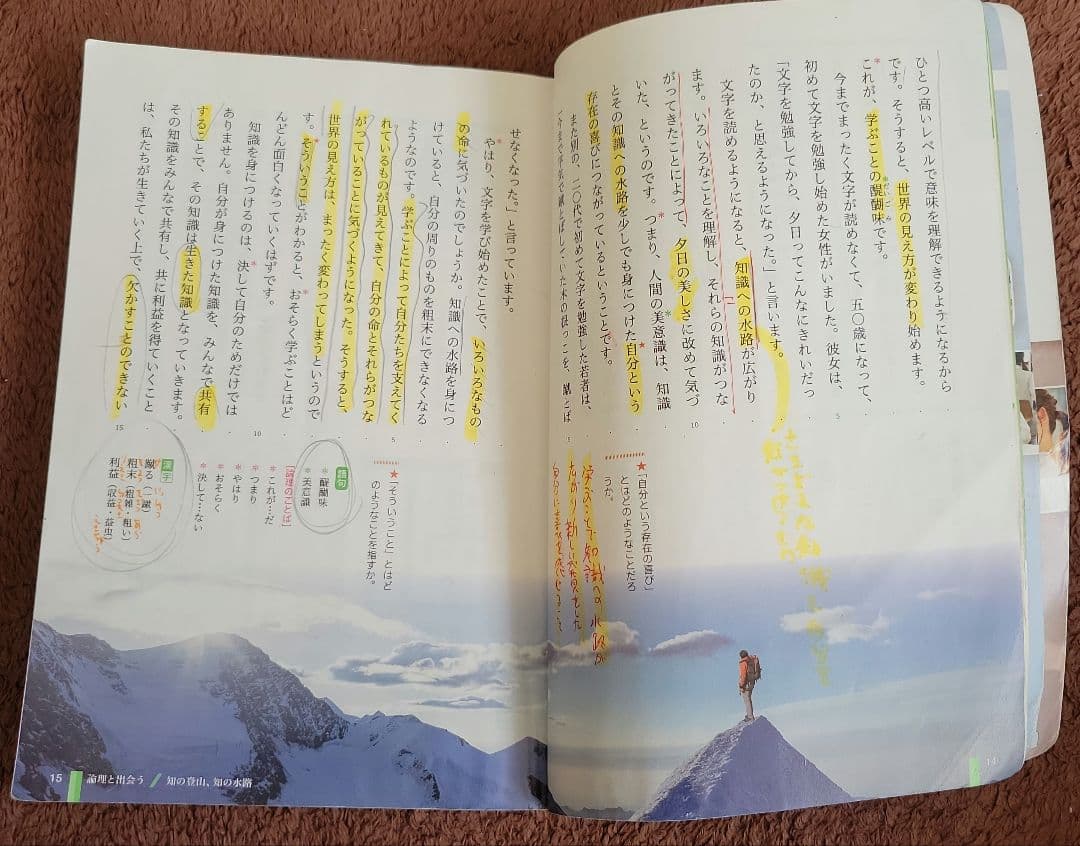 ひとつ高いレベルで意味を理解できるようになるから
です。そうすると、世界の見え方が変わり始めます。
これが、学ぶことの醍醐味です。
だいごみ
今までまったく文字が読めなくて、五〇歳になって、
初めて文字を勉強し始めた女性がいました。彼女は、
「文字を勉強してから、夕日ってこんなにきれいだっ
たのか、と思えるようになった。」と言います。
文字を読めるようになると、知識への水路が広がり
ます。いろいろなことを理解し、それらの知識がつな
がってきたことによって、夕日の美しさに改めて気づ
いた、というのです。つまり、人間の美意識は、知識
とその知識への水路を少しでも身につけた自分という
存在の喜びにつながっているということです。
また別の、二〇代で初めて文字を勉強した若者は、
5
10
★「自分という存在の喜び」
とはどのようなことだろ
うか。
14
せなくなった。」と言っています。
やはり、文字を学び始めたことで、いろいろなもの
の命に気づいたのでしょうか。知識への水路を身につ
けていると、自分の周りのものを粗末にできなくなる
ようなのです。学ぶことによって自分たちを支えてく
れているものが見えてきて、自分の命とそれらがつな
がっていることに気づくようになった。そうすると、
世界の見え方は、まったく変わってしまうというので
す。そういうことがわかると、おそらく学ぶことはど
んどん面白くなっていくはずです。
知識を身につけるのは、決して自分のためだけでは
ありません。自分が身につけた知識を、みんなで共有
することで、その知識は生きた知識となっていきます。
その知識をみんなで共有し、共に利益を得ていくこと
は、私たちが生きていく上で、欠かすことのできない
5
10
15
★「そういうこと」とはど
のようなことを指すか。
語句
＊醍醐味
＊美意識
［論理のことば］
＊これが…だ
＊つまり
＊やはり
＊おそらく
＊決して…ない
漢字
蹴る（一蹴）
粗末（粗雑・粗い）
利益（収益・益虫）
15 論理と出会う / 知の登山、知の水路